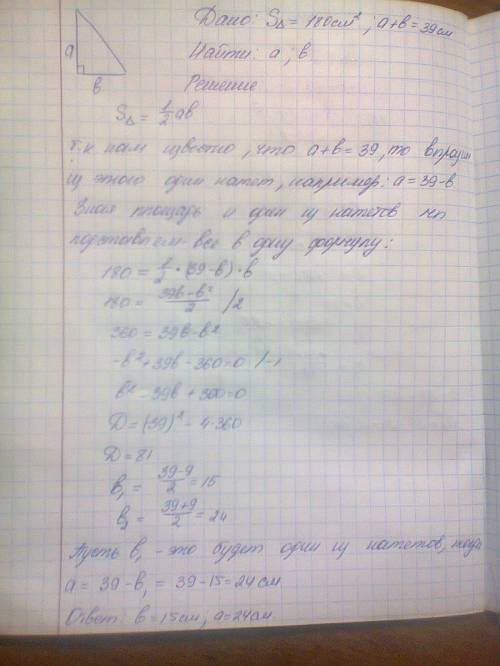 Дано: S△ = 180 см², a+b = 39 см
Найти: a ; b
Решение
a
b
S△ = 1/2 ab
Т.к нам известно, что a+b = 39, то
из этого один катет, например: a = 39-b
Зная площадь и один из катетов
подставляем все в одну формулу:
180 = 1/2 · (39-b) · b
180 = (39b-b²)/2 /2
360 = 39b-b²
-b²+39b-360=0 /-1
b²-39b+360=0
D = (39)² - 4·360
D = 81
b₁ = (39-9)/2 = 15
b₂ = (39+9)/2 = 24
Пусть b₁ - это будет один из катетов, тогда
a = 39-b₁ = 39-15=24 см
Ответ: b=15см, a=24см